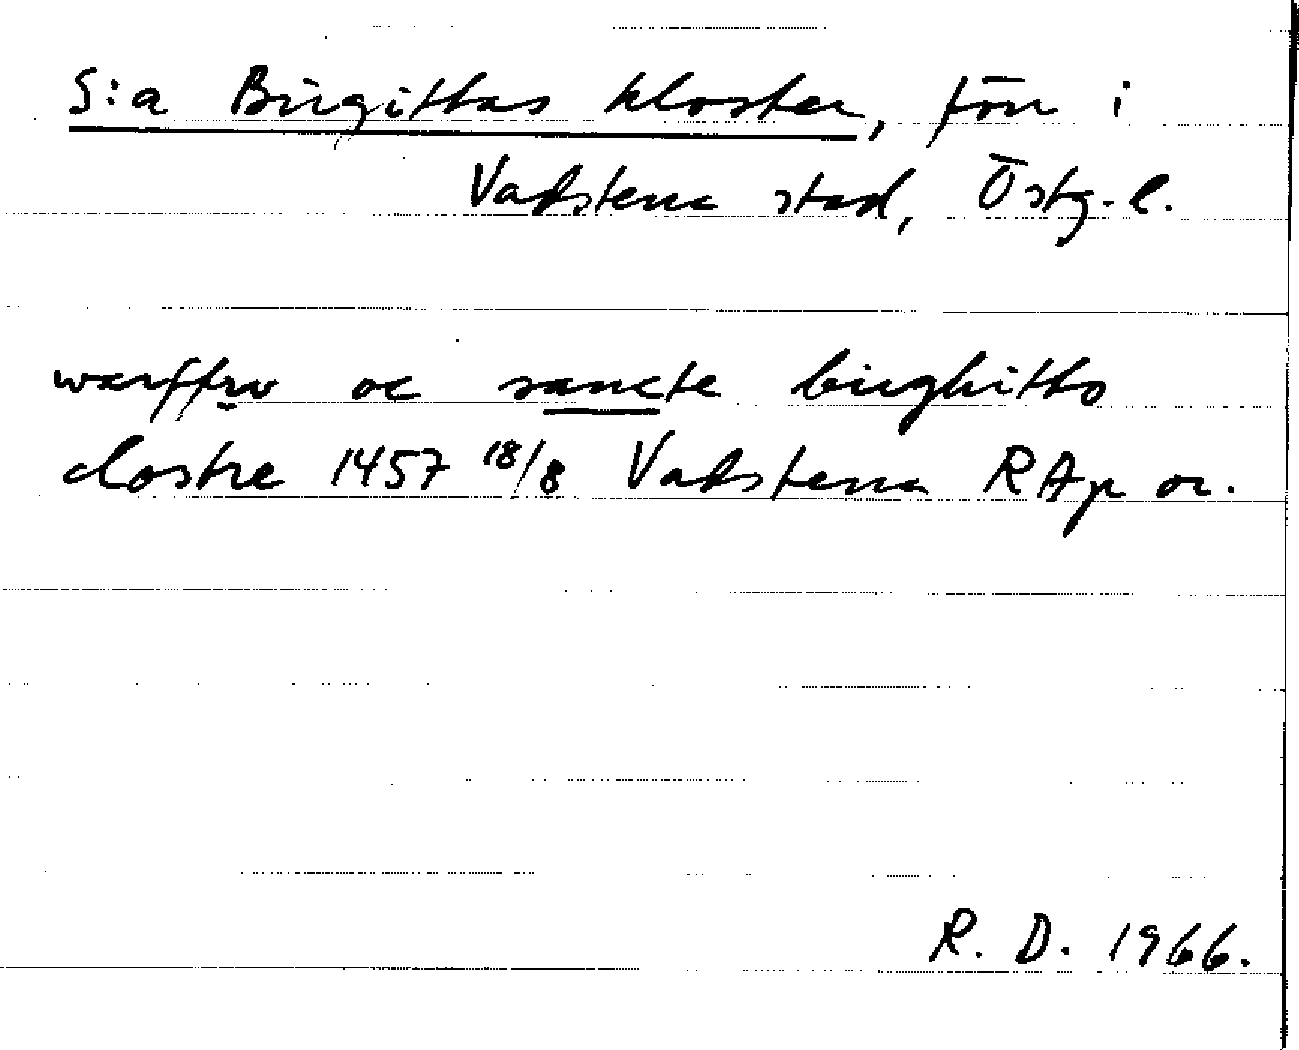 S:a Birgittas kloster, förr i
Vadstena stad, Östg.-l.
warffrv oc sancte birghitto
clostre 1457 18/8 Vadstena RAp or.
R. D. 1966.